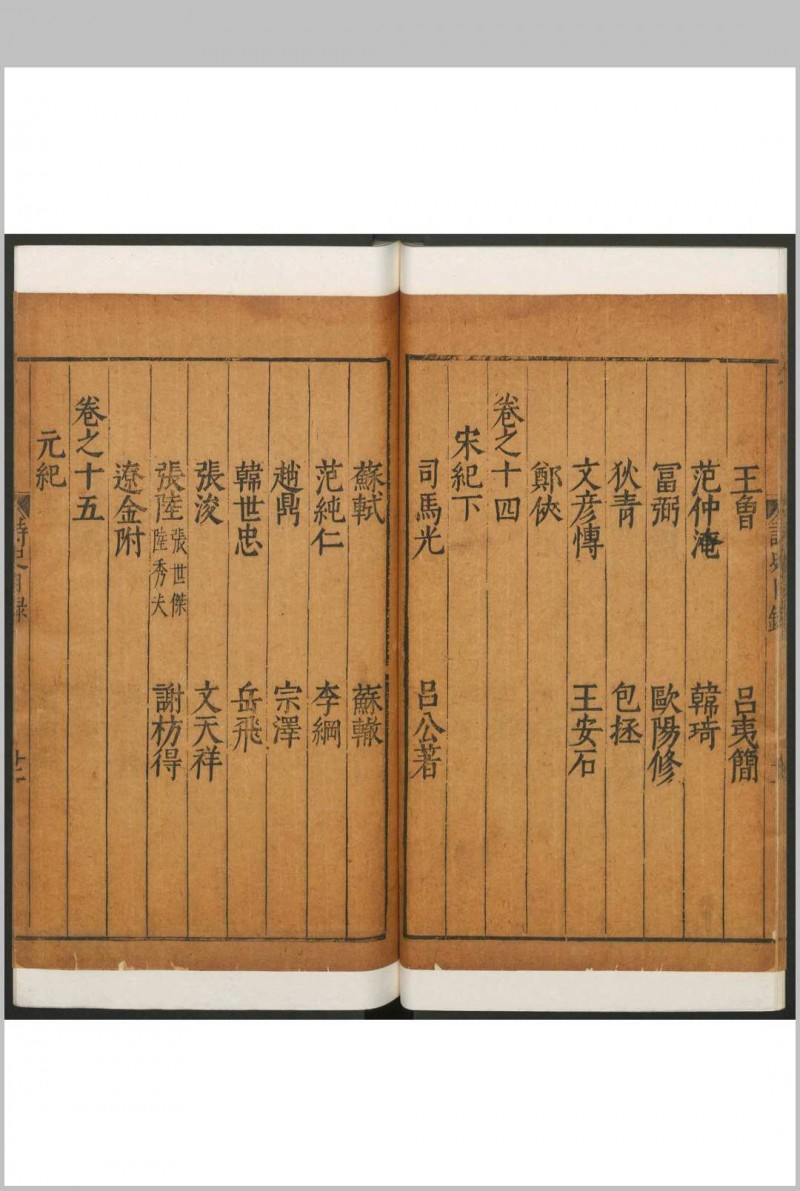 王曾　呂夷簡
范仲淹　韓琦
冨弼　歐陽修
狄青　包拯
文彥愽　王安石
鄭俠
卷之十四
宋紀下
司馬光　呂公著
蘇軾　蘇轍
范純仁　李綱
趙鼎　宗澤
韓世忠　岳飛
張浚　文天祥
張陸 張世傑 陸秀夫　謝枋得
遼金附
卷之十五
元紀
詩史目録